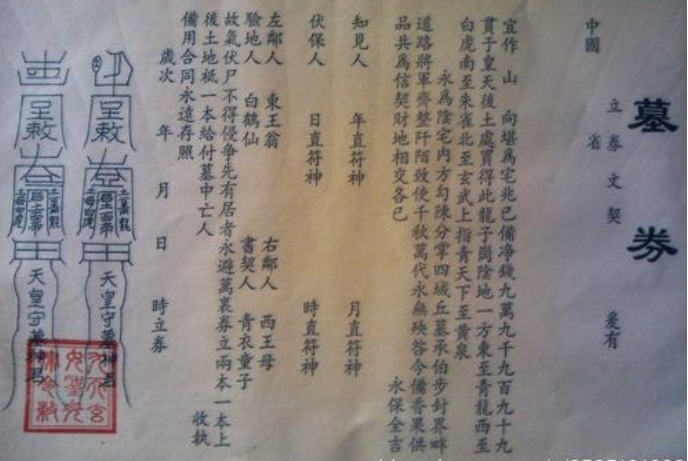 墓券
立券文契　爰有
中國　省
宜作　山　向堪爲宅兆已備净錢九萬九千九百九十九
貫于皇天後土處買得此龍子崗陰地一方東至青龍西至
白虎南至朱雀北至玄武上指青天下至黄泉
永爲陰宅内方勾陳分掌四域丘墓承伯步封界畔
道路將軍齊整阡陌致使千秋萬代永無殃咎今備香果供
品共爲信契財地相交各已　永保全吉
知見人　年直符神　月直符神
伏保人　日直符神　時直符神
左鄰人　東王翁　右鄰人　西王母
驗地人　白鶴仙　書契人　青衣童子
故氣伏尸不得侵争先有居者永避萬裏券立兩本一本上
後土地祗一本給付墓中亡人　收執
備用合同永遠存照
歲次　年　月　日　時立券
天皇守墓
天皇守墓